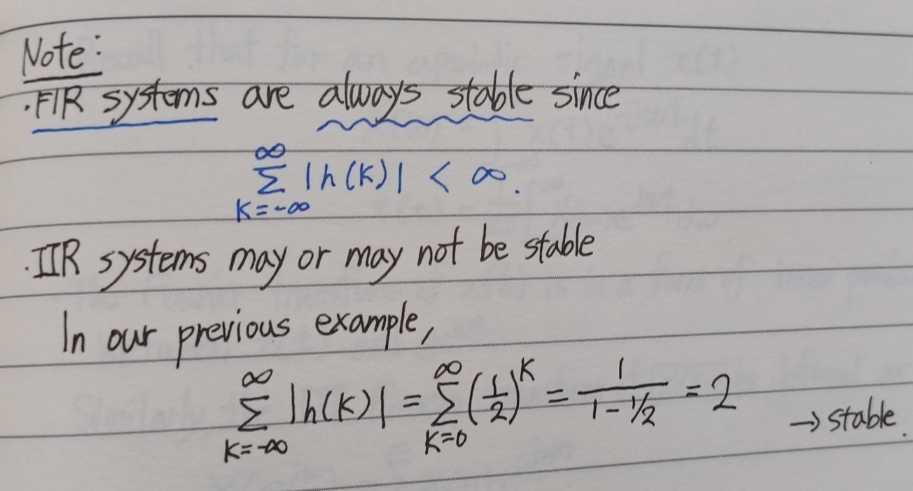 Note:
·FIR systems are always stable since
∞
Σ |h(k)| < ∞.
K=-∞
·IIR systems may or may not be stable
In our previous example,
∞ ∞
Σ |h(k)| = Σ (1/2)^K = 1/(1-1/2) = 2
K=-∞ K=0
→ stable.